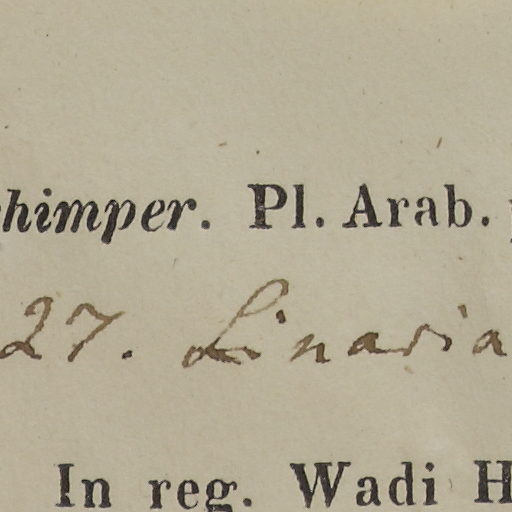 himper. Pl. Arab.
27. Linaria
In reg. Wadi H